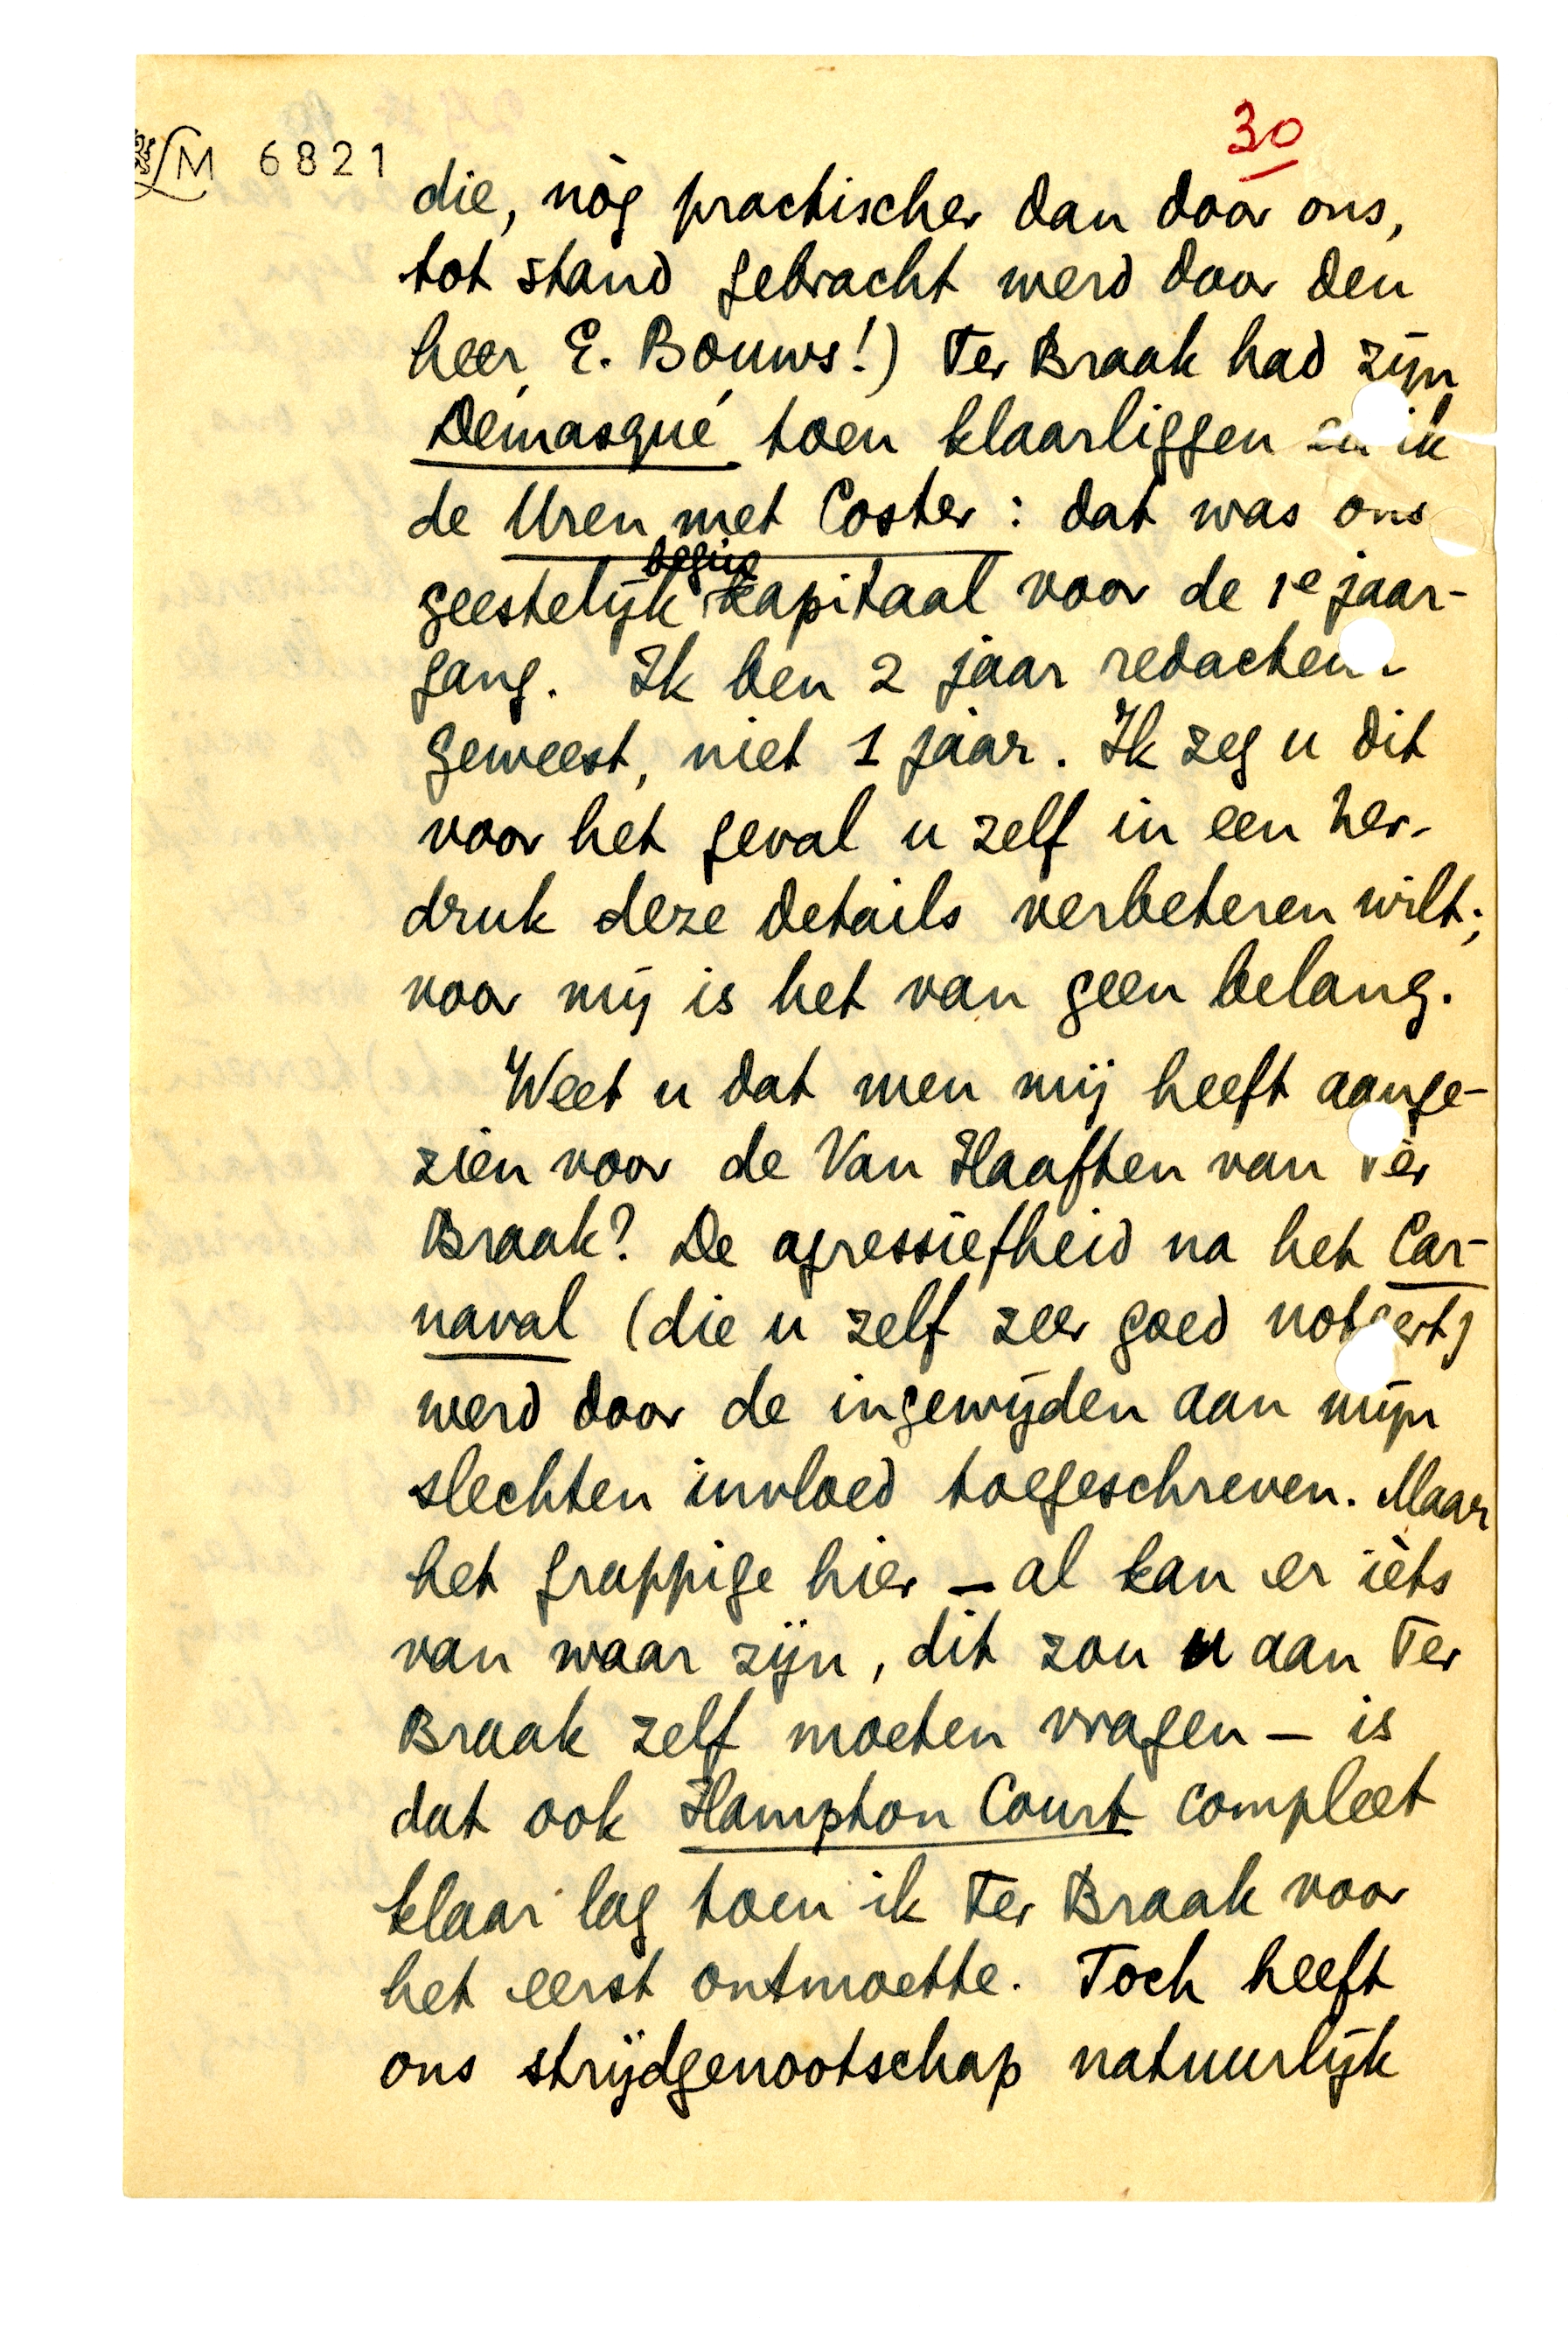 30
LM 6821
die, nòg practischer dan door ons,
tot stand gebracht werd door den
heer E. Bouws!) Ter Braak had zijn
Démasqué toen klaarliggen en ik
de Uren met Coster: dat was ons
begin
geestelijk kapitaal voor de 1e jaar-
gang. Ik ben 2 jaar redacteur
geweest, niet 1 jaar. Ik zeg u dit
voor het geval u zelf in een her-
druk deze details verbeteren wilt;
voor mij is het van geen belang.
Weet u dat men mij heeft aange-
zien voor de Van Haaften van Ter
Braak? De agressiefheid na het Car-
naval (die u zelf zeer goed noteert)
werd door de ingewijden aan mijn
slechten invloed toegeschreven. Maar
het grappige hier – al kan er ièts
van waar zijn, dit zou u aan Ter
Braak zelf moeten vragen – is
dat ook Hampton Court compleet
klaar lag toen ik Ter Braak voor
het eerst ontmoette. Toch heeft
ons strijdgenootschap natuurlijk